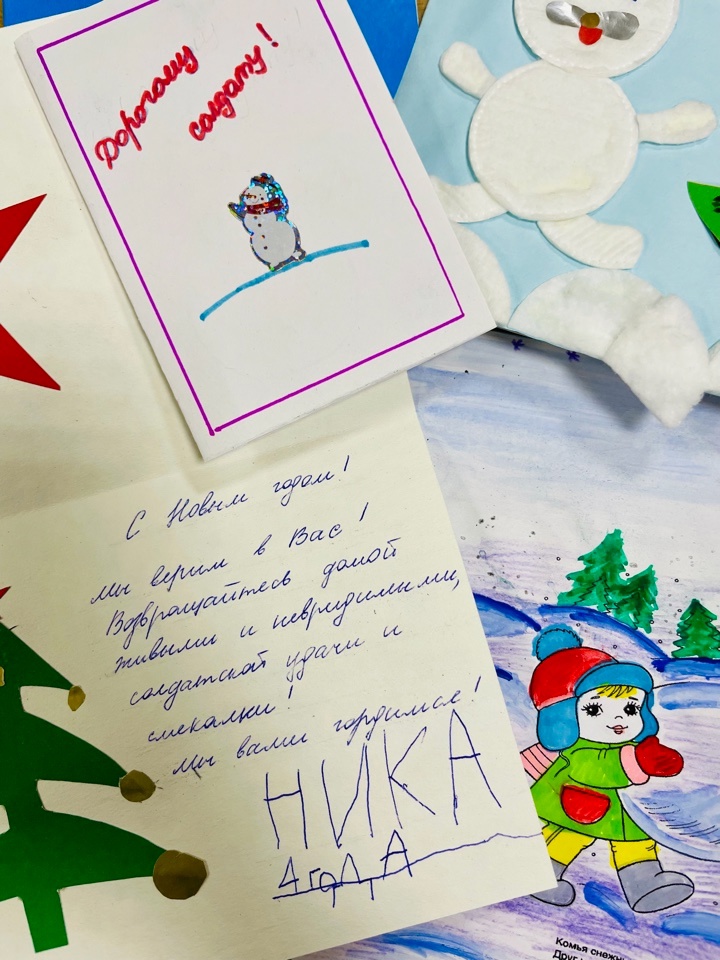 Дорогому
солдату!
С Новым годом!
Мы верим в Вас!
Возвращайтесь домой
живыми и невридимыми,
солдатской удачи и
смекалки!
Мы вами гордимся!
НИКА
4 годА
Комья снежн
Друг